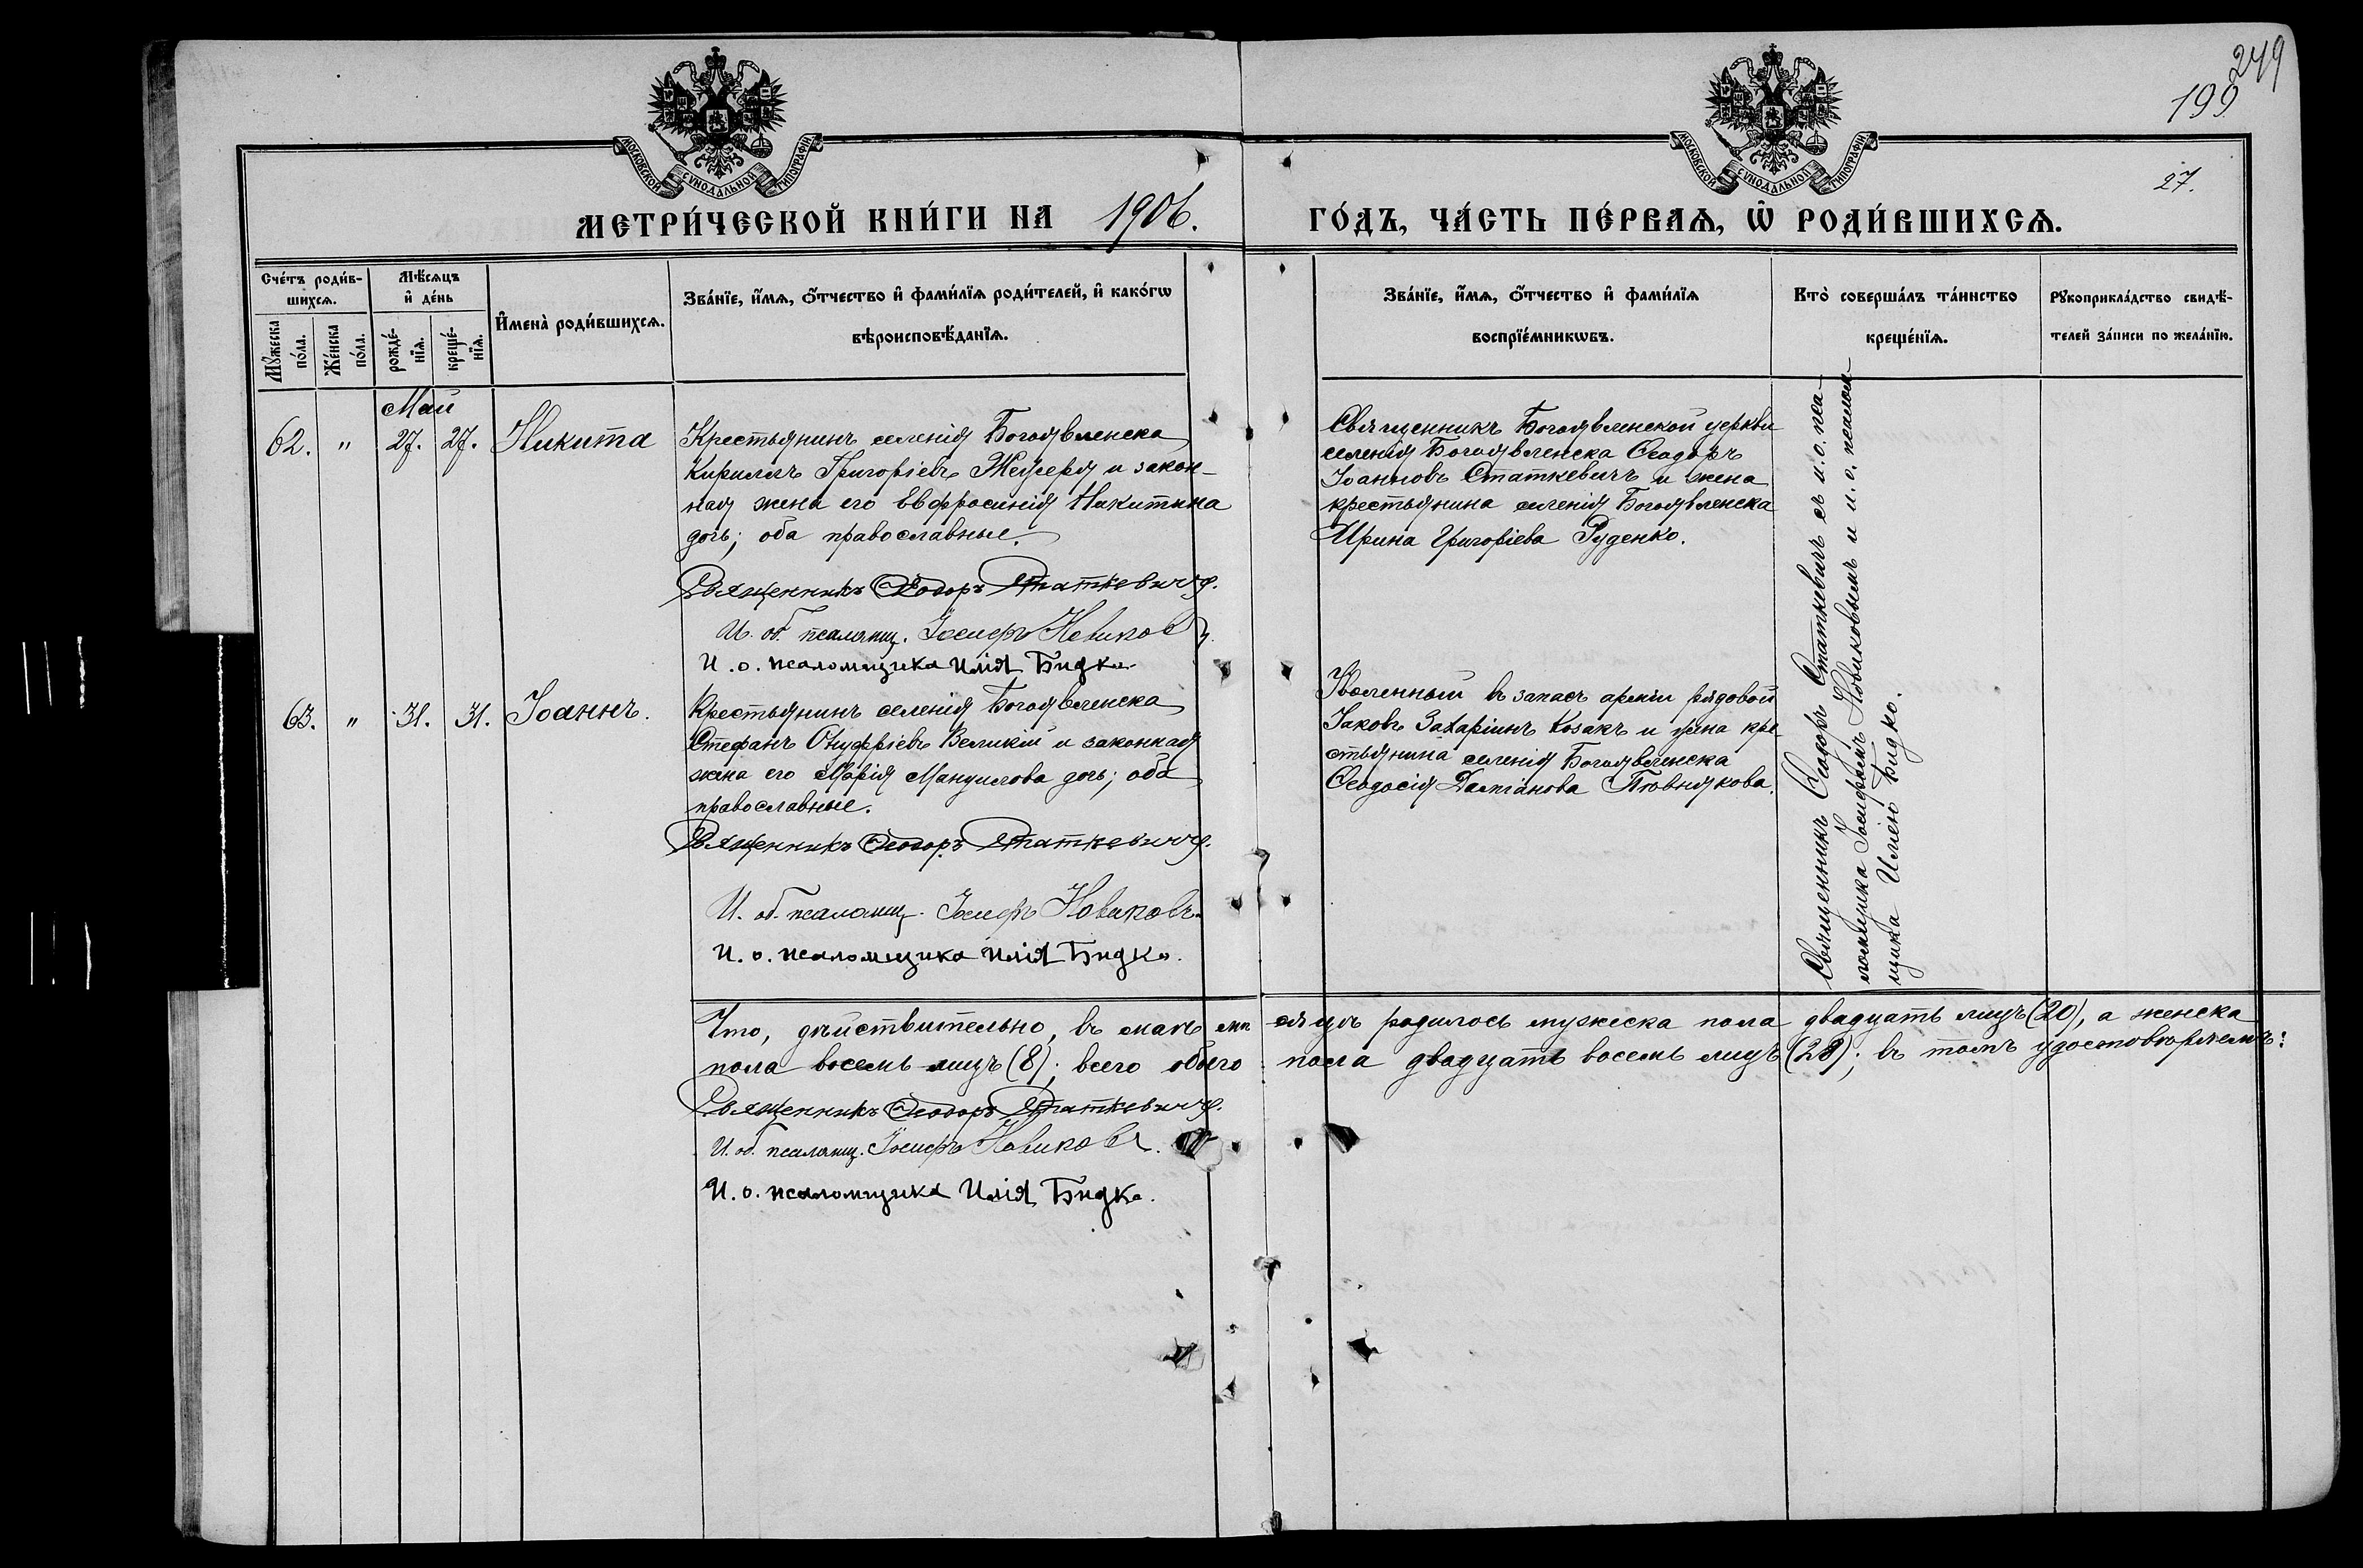 249
199
27.
МОСКОВСКОЙ СѴНОДАЛЬНОЙ ТИПОГРАФІИ
МОСКОВСКОЙ СѴНОДАЛЬНОЙ ТИПОГРАФІИ
МЕТРИ́ЧЕСКОЙ КНИ́ГИ НА 1906. ГО́ДЪ, ЧА́СТЬ ПЕ́РВАѦ, Ѡ҆ РОДИ́ВШИХСѦ.
Сче́тъ роди́в-
шихсѧ.
Мꙋ́жеска
по́ла.
Же́нска
по́ла.
Мѣ́сѧцъ
и҆ де́нь
рожде́-
нїѧ.
креще́-
нїѧ.
И҆мена̀ роди́вшихсѧ.
Зва́нїе, и҆́мѧ, ѻ҆́тчество и҆ фами́лїѧ роди́телей, и҆ како́гѡ
вѣроисповѣ́данїѧ.
Зва́нїе, и҆́мѧ, ѻ҆́тчество и҆ фами́лїѧ
воспрїе́мникѡвъ.
Кто̀ соверша́лъ та́инство
креще́нїѧ.
Рꙋкоприкла́дство свидѣ́-
телей за́писи по жела́нїю.
Май
62. " 27. 27. Никита
Крестьянинъ селенія Богоявленска
Кириллъ Григоріевъ и закон-
ная жена его Евфросинія Никитина
дочь; оба православные.
Священникъ Ѳеодоръ Статкевичъ.
И. об. псаломщ. Іосифъ Новиковъ.
И. о. псаломщика Илія Бидко.
Священникъ Богоявленской церкви
селенія Богоявленска Ѳеодоръ
Іоанновъ Статкевичъ и жена
крестьянина селенія Богоявленска
Ирина Григоріева Руденко.
63. " 31. 31. Іоаннъ.
Крестьянинъ селенія Богоявленска
Стефанъ Онуфріевъ Великій и законная
жена его Марія Мануилова дочь; оба
православные.
Священникъ Ѳеодоръ Статкевичъ.
И. об. псаломщ. Іосифъ Новиковъ.
И. о. псаломщика Илія Бидко.
Уволенный въ запасъ арміи рядовой
Іаковъ Захаріинъ Козакъ и жена кре-
стьянина селенія Богоявленска
Ѳеодосія Даміанова
Священникъ Ѳеодоръ Статкевичъ съ и. о. пса-
ломщика Іосифомъ Новиковымъ и и. о. псалом-
щика Иліею Бидко.
Что, дѣйствительно, въ маѣ мѣсяцѣ родилось мужеска пола двадцать лицъ (20), а женска
пола восемь лицъ (8); всего обоего пола двадцать восемь лицъ (28); въ томъ удостовѣряемъ:
Священникъ Ѳеодоръ Статкевичъ.
И. об. псаломщ. Іосифъ Новиковъ.
И. о. псаломщика Илія Бидко.